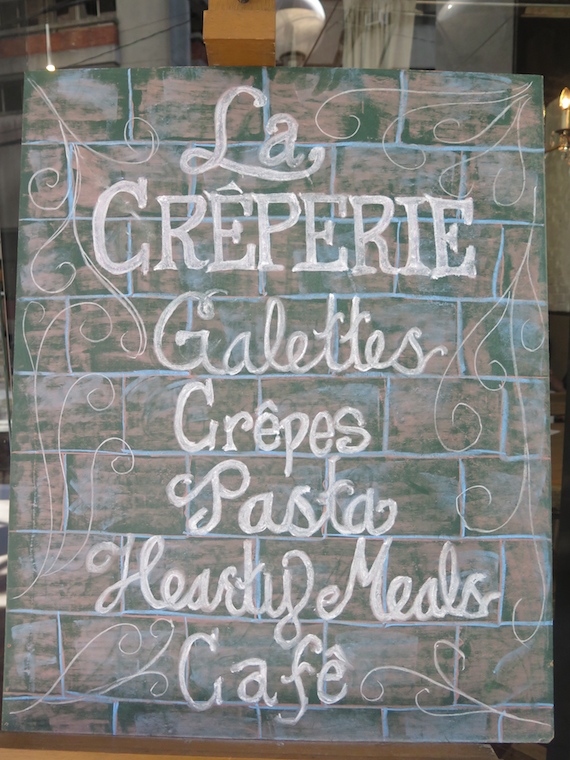 La
CRÊPERIE
Galettes
Crêpes
Pasta
Hearty Meals
Cafê